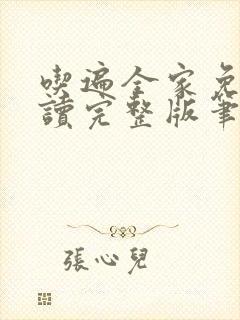 喫遍全家免
讀完整版筆
張心兒